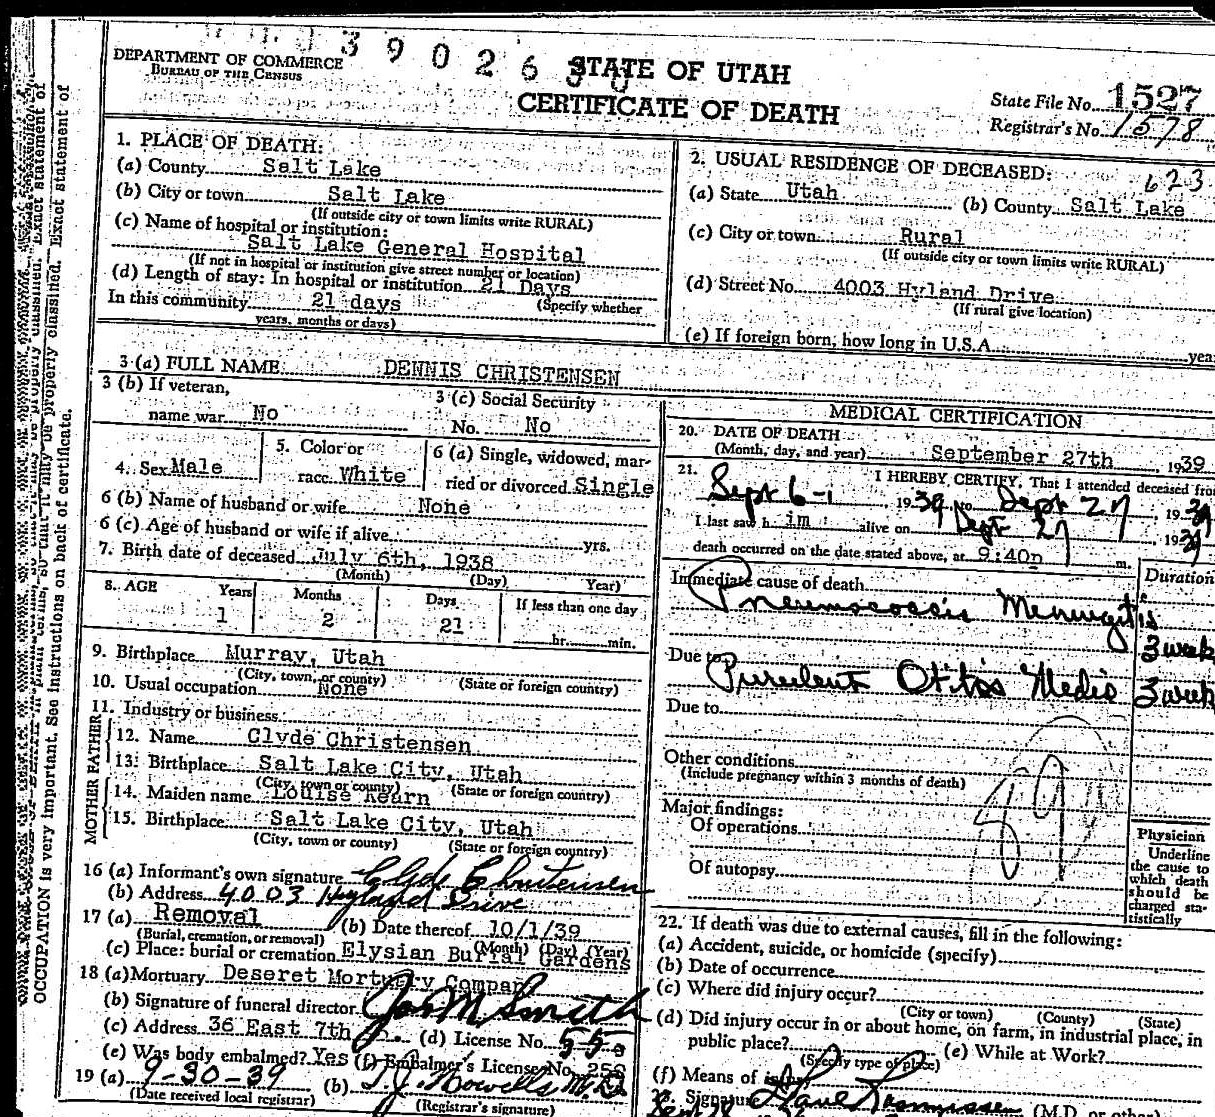 39026
DEPARTMENT OF COMMERCE
BUREAU OF THE CENSUS
STATE OF UTAH
CERTIFICATE OF DEATH
State File No. 1527
Registrar's No. 1578
1. PLACE OF DEATH:
(a) County Salt Lake
(b) City or town Salt Lake
(If outside city or town limits write RURAL)
(c) Name of hospital or institution:
Salt Lake General Hospital
(If not in hospital or institution give street number or location)
(d) Length of stay: In hospital or institution 21 Days
In this community 21 days (Specify whether
years, months or days)
2. USUAL RESIDENCE OF DECEASED:
623
(a) State Utah (b) County Salt Lake
(c) City or town Rural
(If outside city or town limits write RURAL)
(d) Street No. 4003 Hyland Drive
(If rural give location)
(e) If foreign born, how long in U.S.A. year
3 (a) FULL NAME DENNIS CHRISTENSEN
3 (b) If veteran,
name war No
3 (c) Social Security
No. No
4. Sex Male
5. Color or
race White
6 (a) Single, widowed, mar-
ried or divorced Single
6 (b) Name of husband or wife None
6 (c) Age of husband or wife if alive yrs.
7. Birth date of deceased July 6th, 1938
(Month) (Day) Year)
8. AGE Years Months Days If less than one day
1 2 21 hr. min.
9. Birthplace Murray, Utah
(City, town, or county) (State or foreign country)
10. Usual occupation None
11. Industry or business
FATHER
12. Name Clyde Christensen
13. Birthplace Salt Lake City, Utah
(City, town or county) (State or foreign country)
MOTHER
14. Maiden name Louise Kearn
15. Birthplace Salt Lake City, Utah
(City, town or county) (State or foreign country)
16 (a) Informant's own signature Clyde Christensen
(b) Address 4003 Hyland Drive
17 (a) Removal (b) Date thereof 10/1/39
(Burial, cremation, or removal) (Month) (Day) (Year)
(c) Place: burial or cremation Elysian Burial Gardens
18 (a) Mortuary Deseret Mortuary Company
(b) Signature of funeral director Jos M Smith
(c) Address 36 East 7th (d) License No. 55
(e) Was body embalmed? Yes (f) Embalmer's License No.
19 (a) 9-30-39 (b) T.J. Howells M.D.
(Date received local registrar) (Registrar's signature)
MEDICAL CERTIFICATION
20. DATE OF DEATH
(Month, day, and year) September 27th, 1939
21. I HEREBY CERTIFY, That I attended deceased from
Sept 6-1 1939 to Sept 27, 1939
I last saw him alive on Sept 27, 1939
death occurred on the date stated above, at 9:40p m.
Immediate cause of death Duration
Pneumococcis Meningitis
3 week
Due to
Purulent Otitis Media 3 week
Due to
Other conditions
(Include pregnancy within 3 months of death)
Major findings:
Of operations
Of autopsy
89
Physician
Underline
the cause to
which death
should be
charged sta-
tistically
22. If death was due to external causes, fill in the following:
(a) Accident, suicide, or homicide (specify)
(b) Date of occurrence
(c) Where did injury occur?
(City or town) (County) (State)
(d) Did injury occur in or about home, on farm, in industrial place, in
public place? (e) While at Work?
(Specify type of place)
(f) Means of
Signature Rasmussen (M.D. or other)
OCCUPATION is very important. See instructions on back of certificate.
so that it may be properly classified. Exact statement of